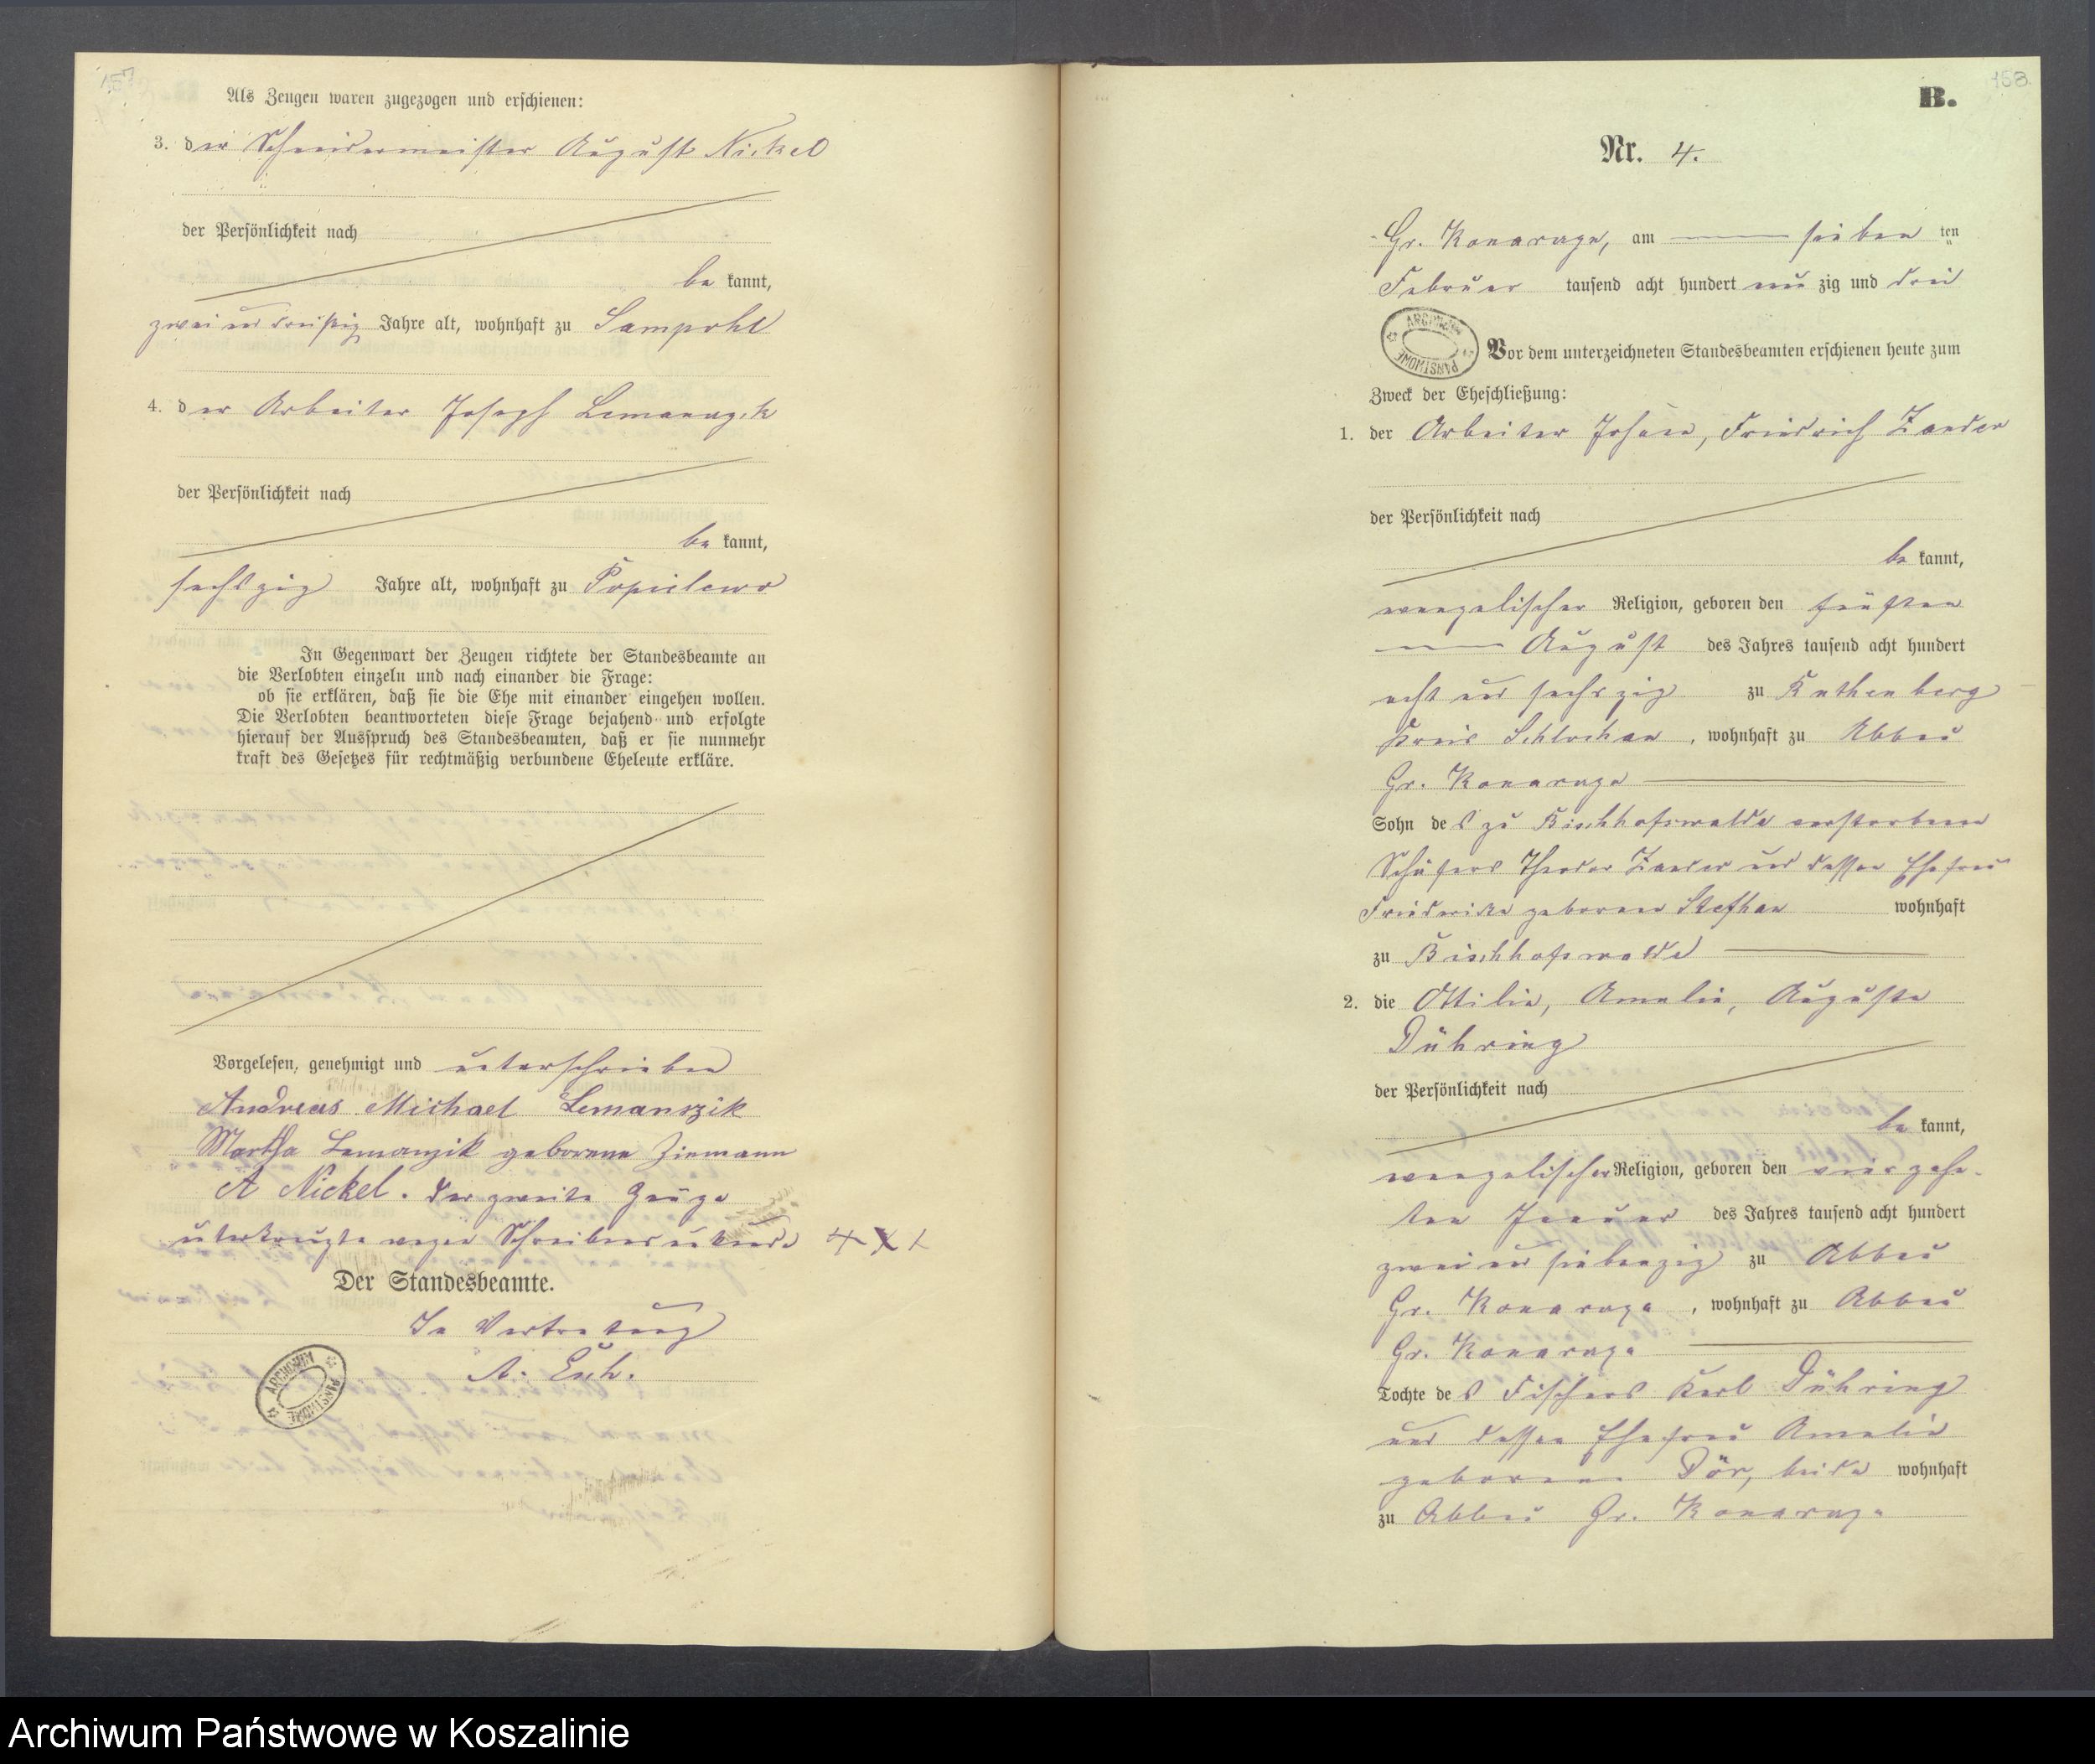 157
Als Zeugen waren zugezogen und erschienen:
3. der Schneidermeister August Nickel
der Persönlichkeit nach
be kannt,
zwei und dreißig Jahre alt, wohnhaft zu Sampohl
4. der Arbeiter Joseph Lemanczik
der Persönlichkeit nach
be kannt,
sechszig Jahre alt, wohnhaft zu Popielewo
In Gegenwart der Zeugen richtete der Standesbeamte an
die Verlobten einzeln und nach einander die Frage:
ob sie erklären, daß sie die Ehe mit einander eingehen wollen.
Die Verlobten beantworteten diese Frage bejahend und erfolgte
hierauf der Ausspruch des Standesbeamten, daß er sie nunmehr
kraft des Gesetzes für rechtmäßig verbundene Eheleute erkläre.
Vorgelesen, genehmigt und unterschrieben
Andreas Michael Lemanszik
Martha Lemanzik geborene Ziemann
A Nickel. Der zweite Zeuge
unterkreuzte wegen Schreibensunkunde +++
Der Standesbeamte.
In Vertretung
ARCHIWUM PAŃSTWOWE
158
B.
Nr. 4.
Gr. Konarczyn, am sieben ten
Februar tausend acht hundert neun zig und drei
ARCHIWUM PAŃSTWOWE
Vor dem unterzeichneten Standesbeamten erschienen heute zum
Zweck der Eheschließung:
1. der Arbeiter Johann, Friedrich Zander
der Persönlichkeit nach
be kannt,
evangelischer Religion, geboren den fünften
August des Jahres tausend acht hundert
acht und sechszig zu Ruthenberg
Kreis Schlochau, wohnhaft zu Abbau
Gr. Konarczyn
Sohn des zu Bischhofswalde verstorbenen
Schäfers Theodor Zander und dessen Ehefrau
Friedericke geborenen Steffhan wohnhaft
zu Bischhofswalde
2. die Ottilie, Amalie, Auguste
Dühring
der Persönlichkeit nach
be kannt,
evangelischer Religion, geboren den vierzehn-
ten Januar des Jahres tausend acht hundert
zwei und siebenzig zu Abbau
Gr. Konarczyn, wohnhaft zu Abbau
Gr. Konarczyn
Tochte des Fischers Karl Dühring
und dessen Ehefrau Amalie
geborenen Dör, beide wohnhaft
zu Abbau Gr. Konarczyn
Archiwum Państwowe w Koszalinie